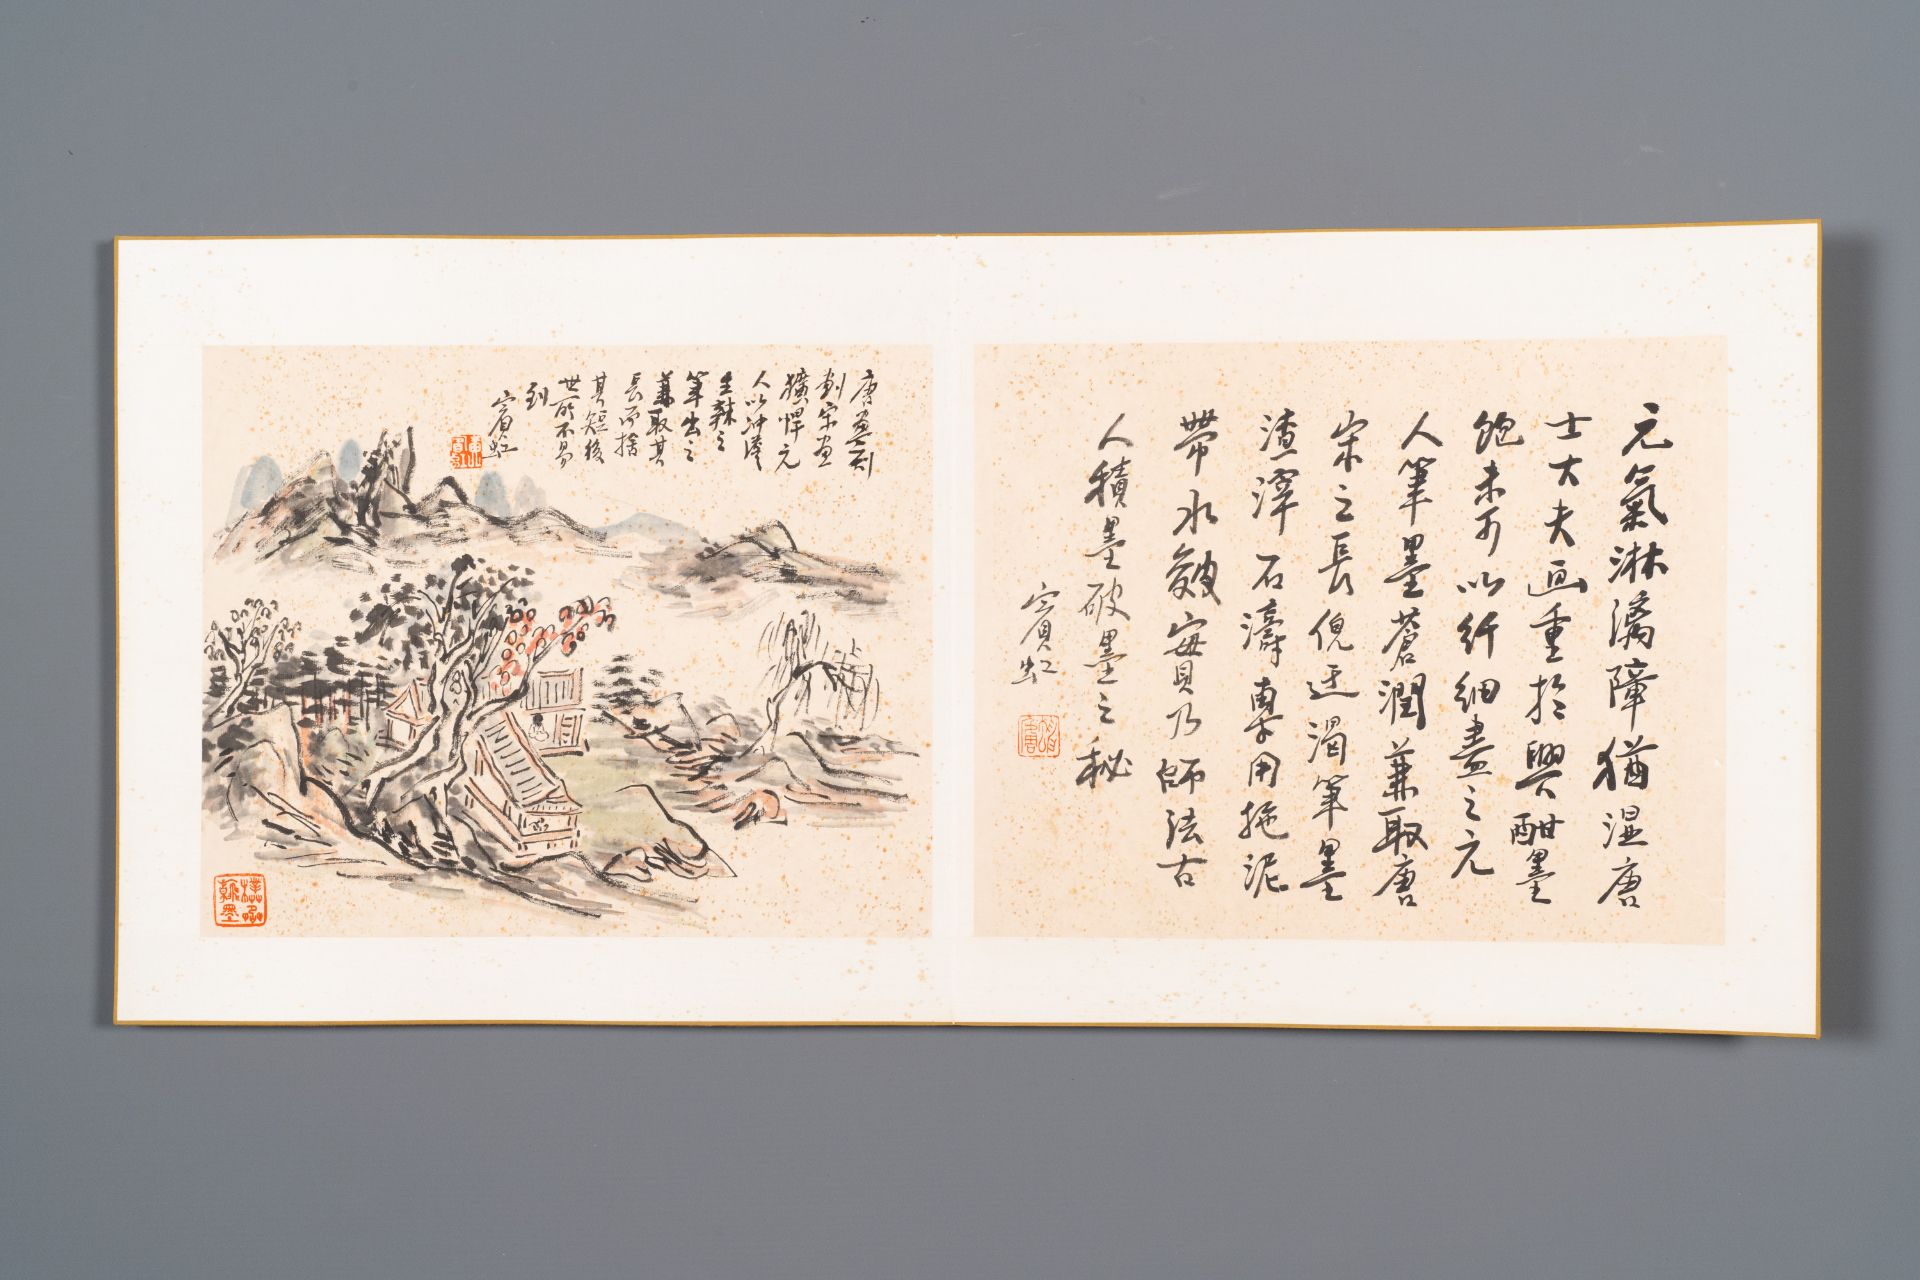 元氣淋漓障猶濕唐
士大夫画重於興酣墨
飽未可以纤細盡之元
人筆墨蒼潤兼取唐
宋之長倪迂渴筆墨
渣滓石濤專用拖泥
帶水皴實乃師法古
人積墨破墨之秘
賓虹
唐畫刻
劃宋畫
獷悍元
人以冲淡
生辣之
筆出之
兼取其
長而捨
其短後
世所不易
到
賓虹